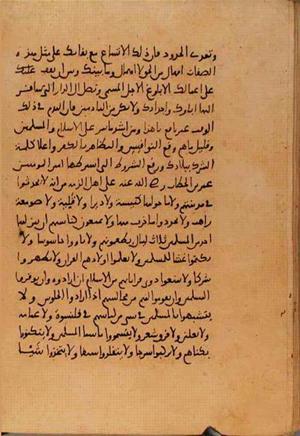 وتعدى الحدود فان ذلك الامتناع مع بقايك على مثل هذه
الصفات
على اعمالك الا بلوغ الاجل المسمى
اليها اباوك واجدادك ولا تكن من النادمين فان اللوم في ذلك
الوقت غير نافع من على الاسلام والمسلمين
وقلة ورفع النواقيس والتظاهر بالكفر واعلا كلمة
الشرك ببلادك ورفع الشروط التي اشترطها امير المومنين
عمر بن الخطاب رضي الله عنه على اهل الذمة من انه لا يحدثوا
في مدينتهم ولا ما حولها كنيسة ولا ديرا ولا قلية ولا صومعة
راهب ولا يجددوا ما خرب منها ولا يمنعون كنايسهم ان ينزلها
احد من المسلمين ثلاث ليال يطعمونهم ولا ياووا جاسوسا ولا
يكتموا غشا للمسلمين ولا يعلموا اولادهم القران ولا يظهروا
شركا ولا يمنعوا ذوي قراباتهم من الاسلام ان ارادوه وان يوقروا
المسلمين وان يقوموا لهم من مجالسهم اذا ارادوا الجلوس ولا
يتشبهوا بالمسلمين في شي من لباسهم في قلنسوة ولا عمامة
ولا نعلين ولا فرق شعر ولا يتسموا باسما المسلمين ولا يتكنوا
بكناهم ولا يركبوا سرجا ولا يتقلدوا سيفا ولا يتخذوا شيا